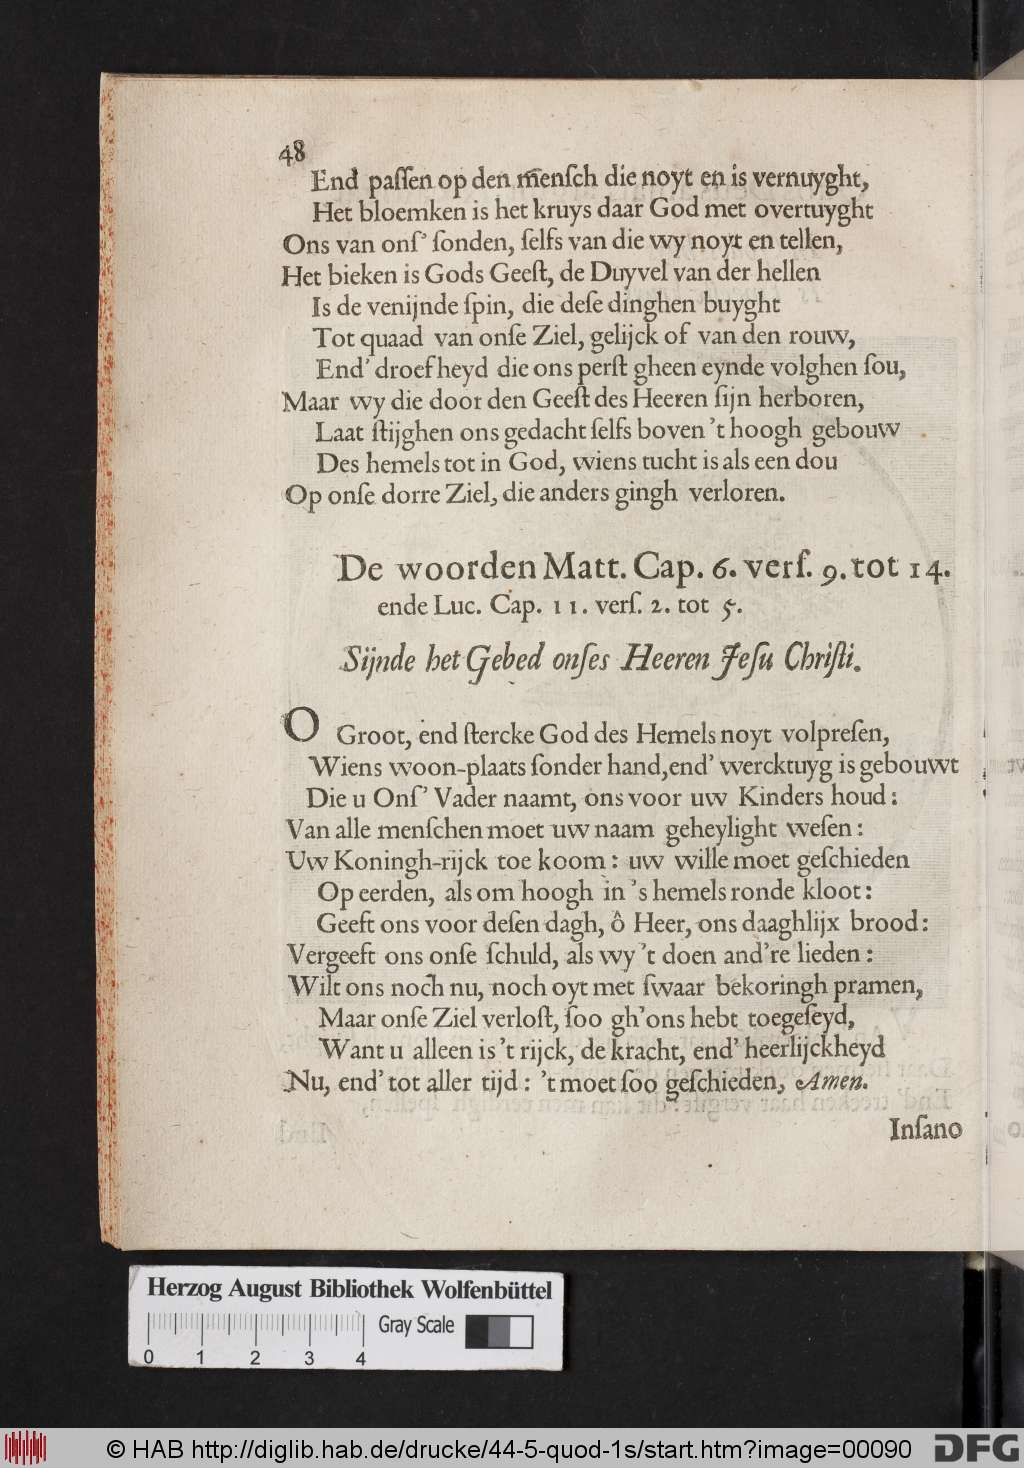 48
End passen op den m̃enſch die noyt en is vernuyght,
Het bloemken is het kruys daar God met overtuyght
Ons van onſ' ſonden, ſelfs van die wy noyt en tellen,
Het bieken is Gods Geeſt, de Duyvel van der hellen
Is de venijnde ſpin, die deſe dinghen buyght
Tot quaad van onſe Ziel, gelijck of van den rouw,
End' droefheyd die ons perſt gheen eynde volghen ſou,
Maar wy die door den Geeſt des Heeren ſijn herboren,
Laat ſtijghen ons gedacht ſelfs boven 't hoogh gebouw
Des hemels tot in God, wiens tucht is als een dou
Op onſe dorre Ziel, die anders gingh verloren.
De woorden Matt. Cap. 6. verſ. 9. tot 14.
ende Luc. Cap. 11. verſ. 2. tot 5.
Sijnde het Gebed onſes Heeren Jeſu Chriſti.
O Groot, end ſtercke God des Hemels noyt volpreſen,
Wiens woon-plaats ſonder hand, end' wercktuyg is gebouwt
Die u Onſ' Vader naamt, ons voor uw Kinders houd:
Van alle menſchen moet uw naam geheylight weſen:
Uw Koningh-rijck toe koom: uw wille moet geſchieden
Op eerden, als om hoogh in 's hemels ronde kloot:
Geeft ons voor deſen dagh, ô Heer, ons daaghlijx brood:
Vergeeft ons onſe ſchuld, als wy 't doen and're lieden:
Wilt ons noch nu, noch oyt met ſwaar bekoringh pramen,
Maar onſe Ziel verloſt, ſoo gh'ons hebt toegeſeyd,
Want u alleen is 't rijck, de kracht, end' heerlijckheyd
Nu, end' tot aller tijd: 't moet ſoo geſchieden, Amen.
Inſano
Herzog August Bibliothek Wolfenbüttel
Gray Scale
0 1 2 3 4
© HAB http://diglib.hab.de/drucke/44-5-quod-1s/start.htm?image=00090
DFG